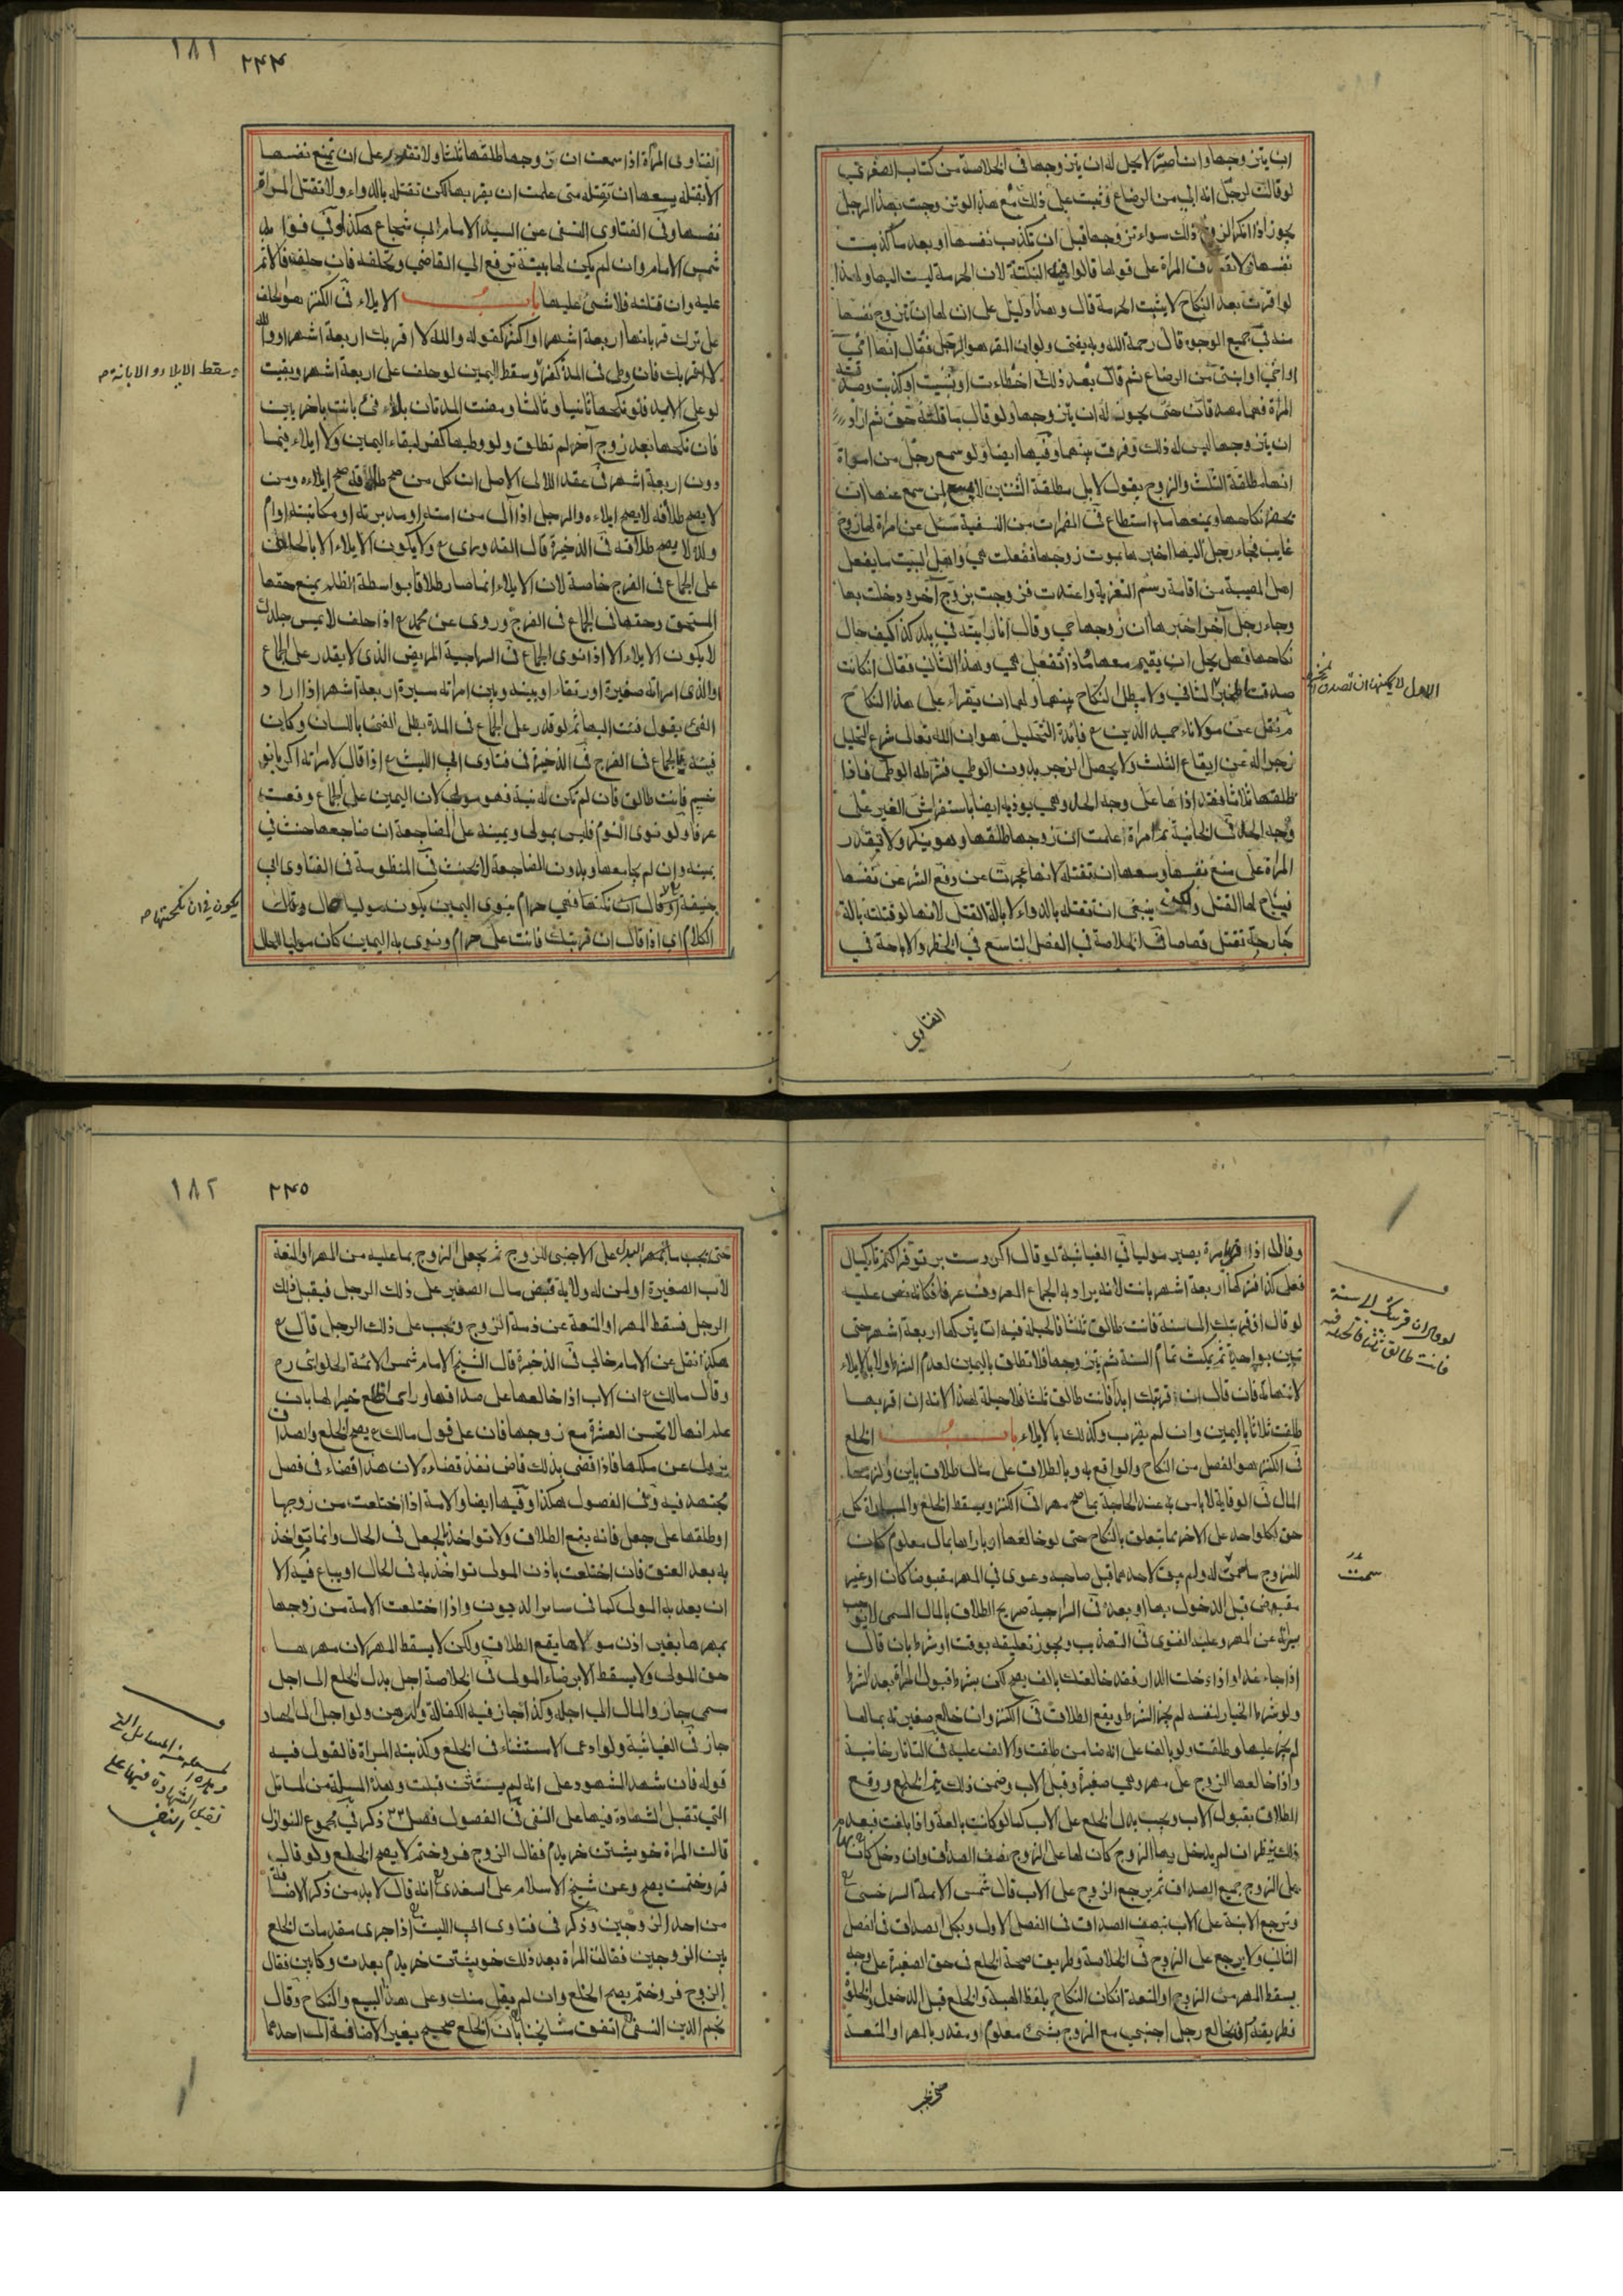 ان يتزوجها وان اصر لا يحل له ان يتزوجها في الخلاصة من كتاب الصغرى
لو قالت لرجل انه ابي من الرضاع وثبت على ذلك مع هذا لو تزوجت بهذا الرجل
يجوز اذا انكر الزوج ذلك سواء تزوجها قبل ان تكذب نفسها او بعد ما كذبت
نفسها ولا تصدق المرأة على قولها قالوا النكتة لان الحرمة ليست اليها ولهذا
لو اقرت بعد النكاح لا يثبت الحرمة قال وهذا دليل على ان لها ان تزوج نفسها
منه في جميع الوجوه قال رحمة الله وبه يفتى ولو ان المقر هو الرجل فقال انها امي
او اختي او ابنتي من الرضاع ثم قال بعد ذلك اخطاءت او نسيت او كذبت وصدقته
المرأة فهما مصدقان حتى يجوز له ان يتزوجها ولو قال ما قلته حق ثم اراد
ان يتزوجها ليس له ذلك وفرق بينهما وفيها ايضا ولو سمع رجل من امراة
انها مطلقة الثلث والزوج يقول لا بل مطلقة الثنتين لا يسع لمن سمع عنها ان
يحضر نكاحها ويمنعها ما استطاع في المضمرات من النسفية سئل عن امراة لها زوج
غايب فجاء رجل اليها اخبرها بموت زوجها ففعلت هي واهل البيت ما يفعل
اهل المصيبة من اقامة رسم التعزية واعتدت فتزوجت بزوج آخر ودخلت بها
وجاء رجل آخر اخبرها ان زوجها حي وقال انا رايته في بلد كذا كيف حال
نكاحها وهل يحل ان يقيم معها ماذا تفعل هي وهذا الثاني فقال ان كانت
صدقت المخبر الثاني ولا يبطل النكاح بينهما ولهما ان يقرا على هذا النكاح
نقل عن مولانا حميد الدين ع فائدة التحليل هو ان الله تعالى شرع التحليل
زجرا له عن ايقاع الثلث ولا يحصل الزجر بدون الوطي فشرط له الوطي فاذا
طلقها ثلاثا فقد اذاها على وجه الحل وهي يوذيه ايضا باستفراش الغير على
وجه الحل في الخانية امراة علمت ان زوجها طلقها وهو ينكر ولا تقدر
المرأة على منع نفسها وسعها ان تقتله لانها عجزت عن دفع الشر عن نفسها
فيباح لها القتل ولكن ينبغي ان تقتله بالدواء لا بآلة القتل لانها لو قتلته بآلة
جارحة تقتل قصاصا في الخلاصة في الفصل التاسع في الحظر والاباحة في
الفتاوي
الاول لا يمكنها ان تصدق المخبر
١٨١ ٢٤٤
الفتاوى المرأة اذا سمعت ان زوجها طلقها ثلثا ولا تقدر على ان تمنع نفسها
الا بقتله يسعها ان تقتله متى علمت ان يقربها لكن تقتله بالدواء ولا تقتل المرأة
نفسها وفي الفتاوى النسفي عن السيد الامام ابي شجاع هكذا وفي فوائد
شمس الامام وان لم يكن لها بينة ترفع الى القاضي وتحلفه فان حلف فالاثم
عليه وان قتلته فلا شئ عليها باب الايلاء في الكنز هو الحلف
على ترك قربانها اربعة اشهر او اكثر كقوله والله لا اقربك اربعة اشهر او والله
لا اقربك فان وطي في المدة كفر وسقط اليمين لو حلف على اربعة اشهر وبقيت
لو على الابد فلو نكحها ثانيا وثالثا ومضت المدتان بلا فئ بانت باخريين
فان نكحها بعد زوج آخر لم تطلق ولو وطيها كفر لبقاء اليمين ولا ايلاء فيما
دون اربعة اشهر في عقد اللالى الاصل ان كل من صح طلاقه صح ايلاءه ومن
لا يصح طلاقه لا يصح ايلاءه والرجل اذا آلى من امته او مدبرته او مكاتبته او ام
ولده لا يصح طلاقه في الذخيرة قال القدوري ع ولا يكون الايلاء الا بالحلف
على الجماع في الفرج خاصة لان الايلاء انما صار طلاقا بواسطة الظلم بمنع حقها
المستحق وحقها في الجماع في الفرج وروى عن محمد ع اذا حلف لا يمس جلدك
لا يكون الايلاء الا اذا نوى الجماع في السراجية المريض الذي لا يقدر على الجماع
او الذي امراته صغيرة او رتقاء او بينه وبين امراته مسيرة اربعة اشهر اذا اراد
الفئ يقول فئت اليها ثم لو قدر على الجماع في المدة بطل الفئ باللسان وكان
فيئه بالجماع في الفرج في الذخيرة في فتاوى ابي الليث ع اذا قال لامراته اكر با تو
خسبم فانت طالق فان لم تكن له نية فهو مولى لان اليمين على الجماع وقعت
عرفا ولو نوى النوم فليس بمولى ويمينه على المضاجعة ان ضاجعها حنث في
يمينه وان لم يجامعها وبدون المضاجعة لا يحنث في المنظومة في الفتاوى ابي
حنيفة لو قال ان نكحتها فهي حرام ينوي اليمين يكون موليا حال وقال
الكلام اي اذا قال ان قربتك فانت على حرام ونوى به اليمين كان موليا للحال
وسقط الايلاء والابانة
يكون في ان نكحتها
وقالا اذا قربها مرة يصير موليا في الغياثية لو قال اكر دست بر تو فراكنم تا يكسال
فعلى كذا فتركها اربعة اشهر بانت لانه يراد به الجماع المعروف عرفا فكانه نص عليه
لو قال اقربتك الى سنة فانت طالق ثلثا فالحيلة فيه ان يتركها اربعة اشهر حتى
تبين بواحدة ثم يمكث تمام السنة ثم يتزوجها فلا تطلق باليمين لعدم الشرط ولا بالايلاء
لانتهائه فان قال ان قربتك ابدا فانت طالق ثلثا فلا حيلة لهذا لانه ان اقربها
طلقت ثلاثا باليمين وان لم يقرب وكذلك بالايلاء باب الخلع
في الكنز هو الفصل من النكاح والواقع به وبالطلاق على مال طلاق باين ولزمها
المال في الوقاية لا باس به عند الحاجة بما صح مهرا في الكنز ويسقط الخلع والمباراة كل
حق لكل واحد على الاخر مما يتعلق بالنكاح حتى لو خالعها او باراها بمال معلوم كان
للزوج ما سمت له ولم يبق لاحدهما قبل صاحبه دعوى في المهر مقبوضا كان او غير
مقبوض قبل الدخول بها او بعده في السراجية صريح الطلاق بالمال المسمى لا يوجب
براءة عن المهر وعليه الفتوى في التهذيب ويجوز تعليقه بوقت او شرط بان قال
اذا جاء غدا واذا دخلت الدار فقد خالعتك بالف يصح لكن بشرط قبول المرأة بعد الشرط
ولو شرط الخيار لنفسه لم يجز الشرط ويقع الطلاق في الكنز وان خالع صغيرته بمالها
لم يجز عليها وطلقت ولو بالف على انه ضامن طلقت والالف عليه في التاتارخانية
واذا خالعها الزوج على مهر وهي صغيرة وقبل الاب وضمن ذلك تم الخلع ووقع
الطلاق بقبول الاب ويجب بدل الخلع على الاب كما لو كانت بالغة واذا بلغت فبعد
ذلك ينظر ان لم يدخل بها الزوج كان لها على الزوج نصف الصداق وان دخل كان لها
على الزوج جميع الصداق ثم يرجع الزوج على الاب قال شمس الائمة السرخسي ع
وترجع الابنة على الاب بنصف الصداق في الفصل الاول وبكل الصداق في الفصل
الثاني ولا يرجع على الزوج في الخلاصة وطريق صحة الخلع في حق الصغيرة على وجه
يسقط المهر من الزوج او المتعة ان كان النكاح بلفظ الهبة والخلع قبل الدخول والخلوة
فطريقه ان يخالع رجل اجنبي مع الزوج بشئ معلوم او مقدر بالمهر او المتعة
لو قال ان قربتك الى سنة
فانت طالق ثلثا فالحيلة فيه
سمت
١٨٢ ٢٤٥
حتى يجب البدل على الاجنبي للزوج ثم يجعل الزوج بما عليه من المهر او المتعة
لاب الصغيرة او لمن له ولاية قبض مال الصغير على ذلك الرجل فيقبل ذلك
الرجل فسقط المهر او المتعة عن ذمة الزوج ويجب على ذلك الرجل قال ع
هكذا نقل عن الامام خالي في الذخيرة قال الشيخ الامام شمس الائمة الحلوائي رح
وقال مالك ع ان الاب اذا خالعها على صداقها وراى الخلع خيرا لها بان
علم انها لا تحسن العشرة مع زوجها فان على قول مالك ع يصح الخلع والصداق
يزول عن ملكها فاذا قضى بذلك قاض نفذ قضاءه لان هذا قضاء في فصل
مجتهد فيه وفي الفصول هكذا وفيها ايضا والامة اذا اختلعت من زوجها
او طلقها على جعل فانه يقع الطلاق ولا تواخذ بالجعل في الحال وانما تواخذ
به بعد العتق فان اختلعت باذن المولى تواخذ به في الحال او يباع فيه الا
ان يفديه المولى كما في ساير الديون واذا اختلعت الامة من زوجها
بمهرها بغير اذن مولاها يقع الطلاق ولكن لا يسقط المهر لان مهرها
حق المولى ولا يسقط الا برضاء المولى في الخلاصة اجل بدل الخلع الى اجل
سمى جاز والمال الى اجله وكذا تجاز فيه الكفالة والرهن ولو اجل الى الحصاد
جاز في الغياثية ولو ادعى الاستثناء في الخلع وكذبته المراة فالقول فيه
قوله فان شهد الشهود على انه لم يستثن قبلت وهذه المسئلة من المسائل
التي تقبل الشهادة فيها على النفي في الفصول فصل ٢٣ ذكر في مجموع النوازل
قالت المراة خويشتن خريدم فقال الزوج فروختم لا يصح الخلع ولو قال
فروختمت يصح وعن شيخ الاسلام على السغدي ع انه قال لابد من ذكر الاضافة
من احد الزوجين وذكر في فتاوى ابي الليث ع اذا جرى مقدمات الخلع
بين الزوجين فقالت المراة بعد ذلك خويشتن خريدم بعدت وكابين فقال
الزوج فروختم يصح الخلع وان لم يقل منك وعلى هذا البيع والنكاح وقال
نجم الدين النسفي ع اتفق مشايخنا بان الخلع صحيح بغير الاضافة الى احدهما
المسائل التي
تقبل الشهادة فيها على
النفي